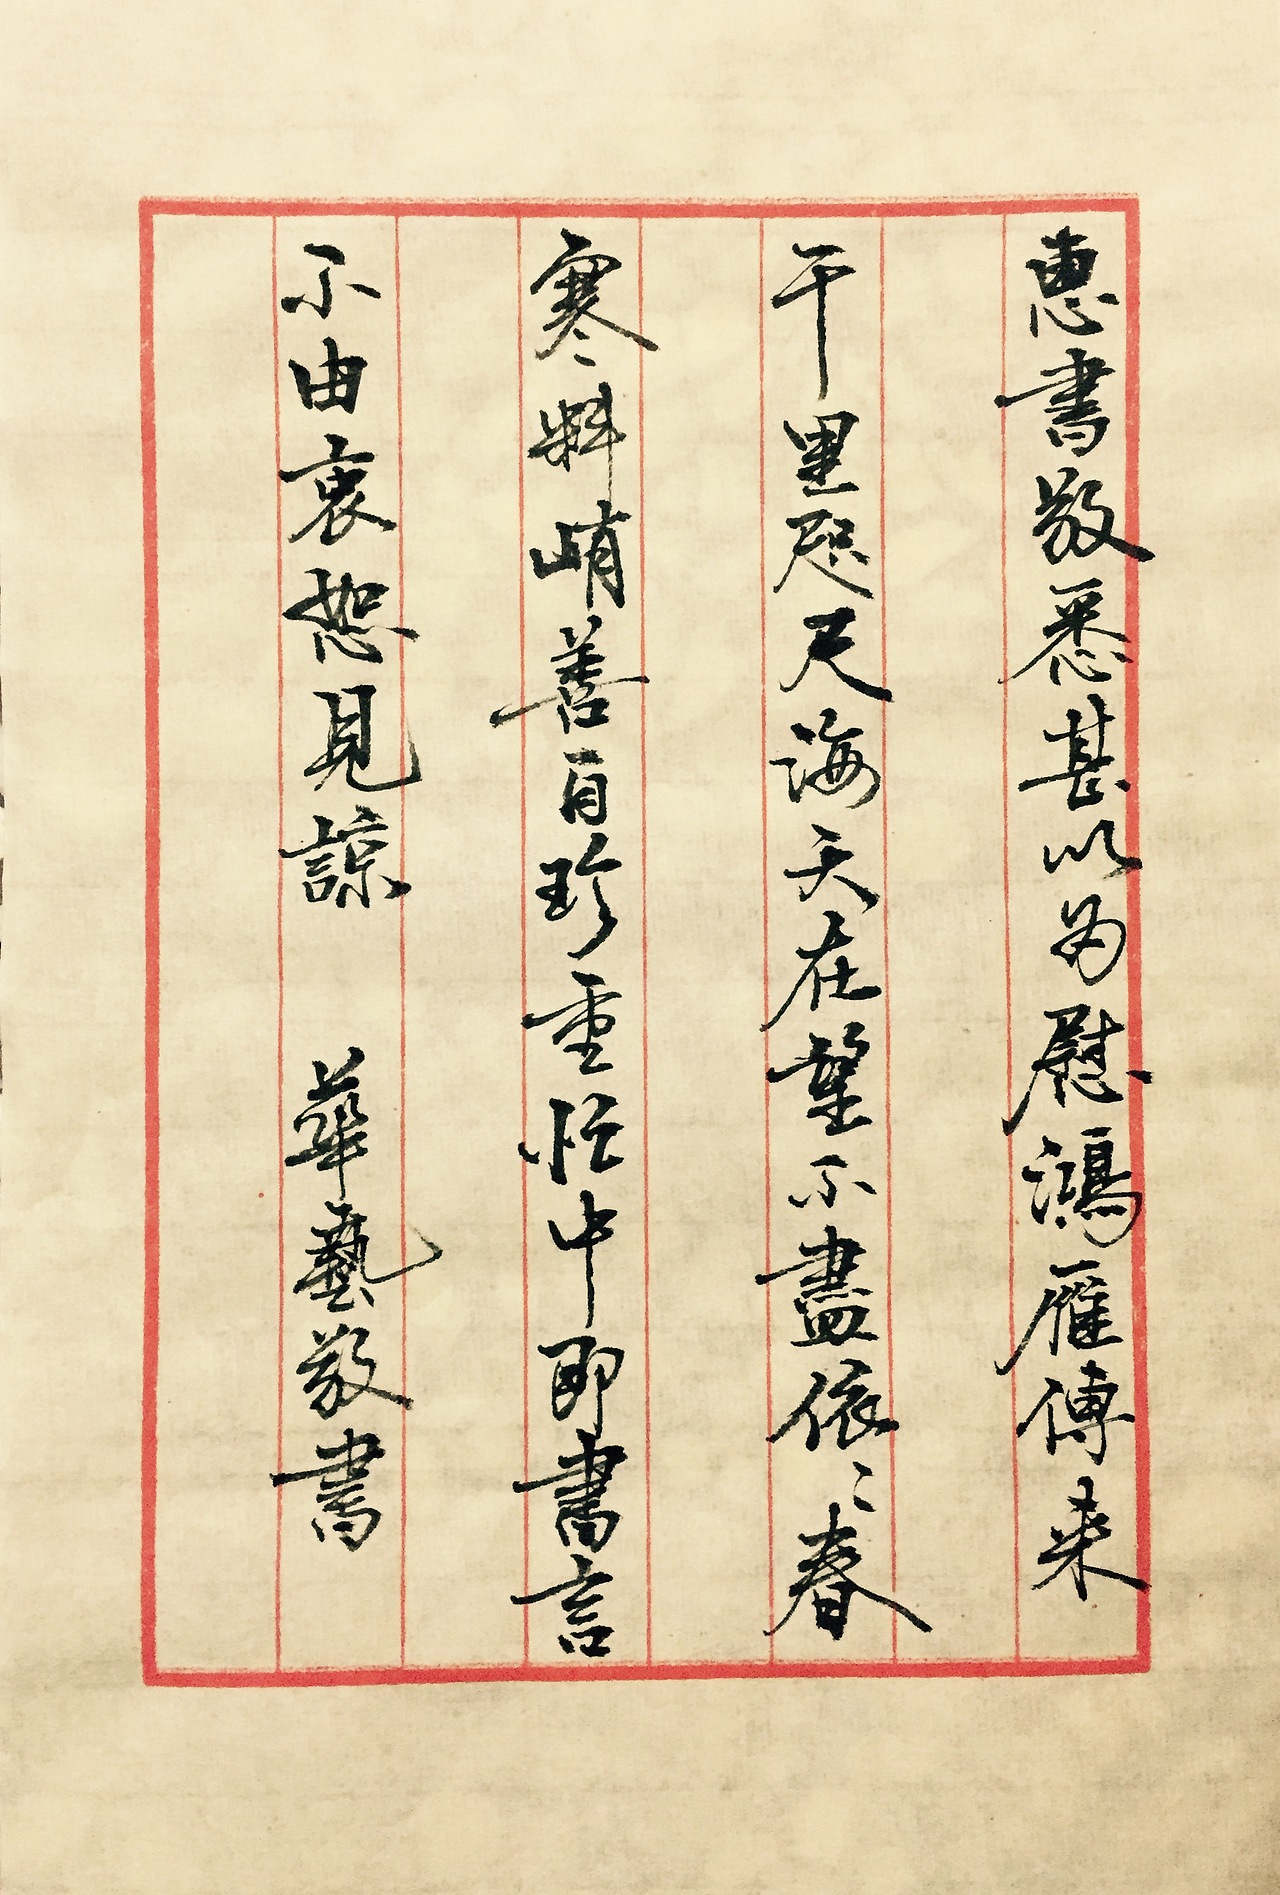 惠書敬悉甚以為慰鴻雁傳来
千里咫尺海天在望不盡依〻春
寒料峭善自珍重忙中即書言
不由衷恕見諒 華藝敬書